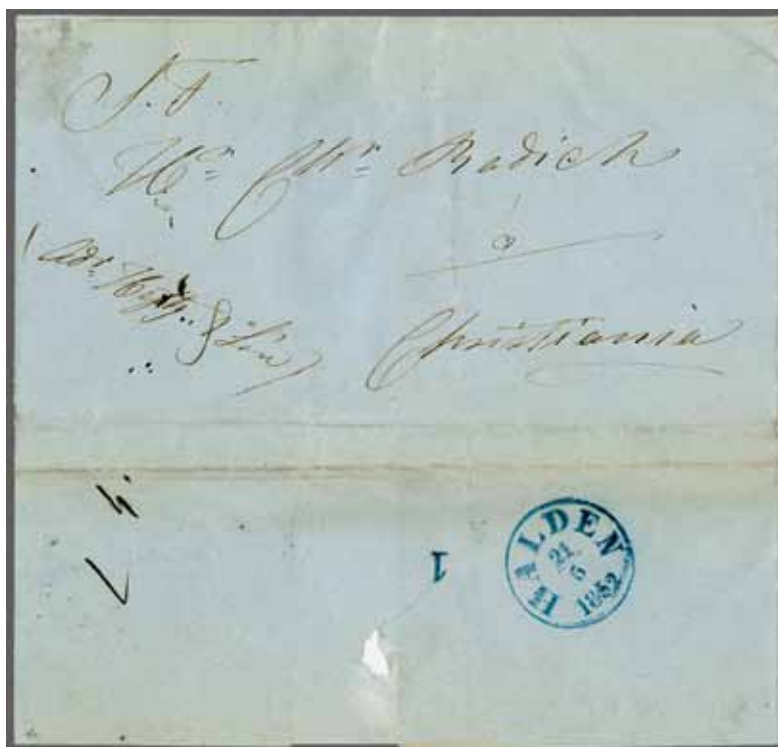 S.T.
Hrn Chrn Radich
a
Christiania
Adr. &
HALDEN
21
5
1852
1